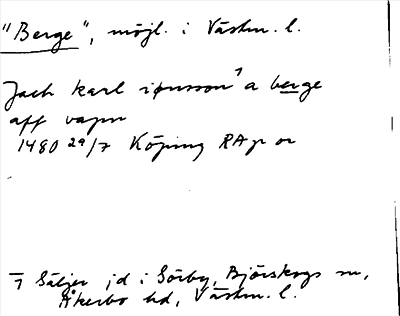 "Berge", möjl. i Västm. l.
Jach karl iønsson ¹ a berge
aff vapn
1480 29/7 Köping RAp or
1 Säljer jd i Sörby, Björskogs sn,
Åkerbo hd, Västm. l.